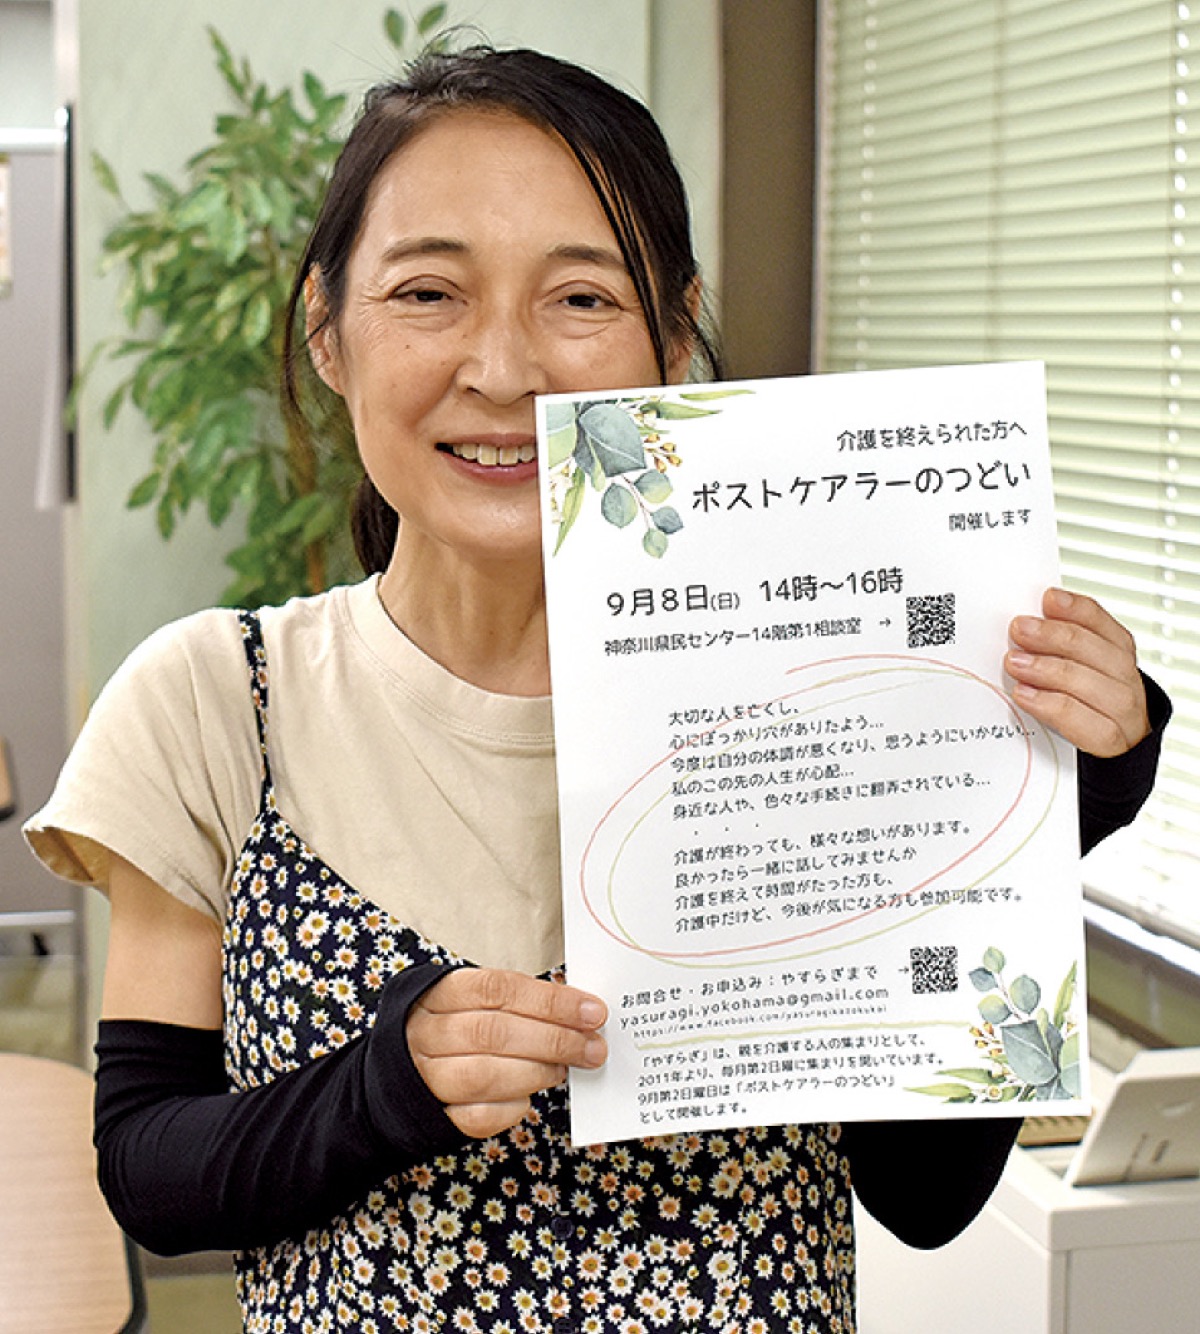 介護を終えられた方へ
ポストケアラーのつどい
開催します
9月8日(日) 14時～16時
神奈川県民センター14階第1相談室 →
大切な人を亡くし、
心にぽっかり穴がありたよう…
今度は自分の体調が悪くなり、思うようにいかない…
私のこの先の人生が心配…
身近な人や、色々な手続きに翻弄されている…
・ ・ ・
介護が終わっても、様々な想いがあります。
良かったら一緒に話してみませんか
介護を終えて時間がたった方も、
介護中だけど、今後が気になる方も参加可能です。
お問合せ・お申込み：やすらぎまで →
yasuragi.yokohama@gmail.com
https://www.facebook.com/yasuragikazokukai
「やすらぎ」は、親を介護する人の集まりとして、
2011年より、毎月第2日曜に集まりを開いています。
9月第2日曜日は「ポストケアラーのつどい」
として開催します。